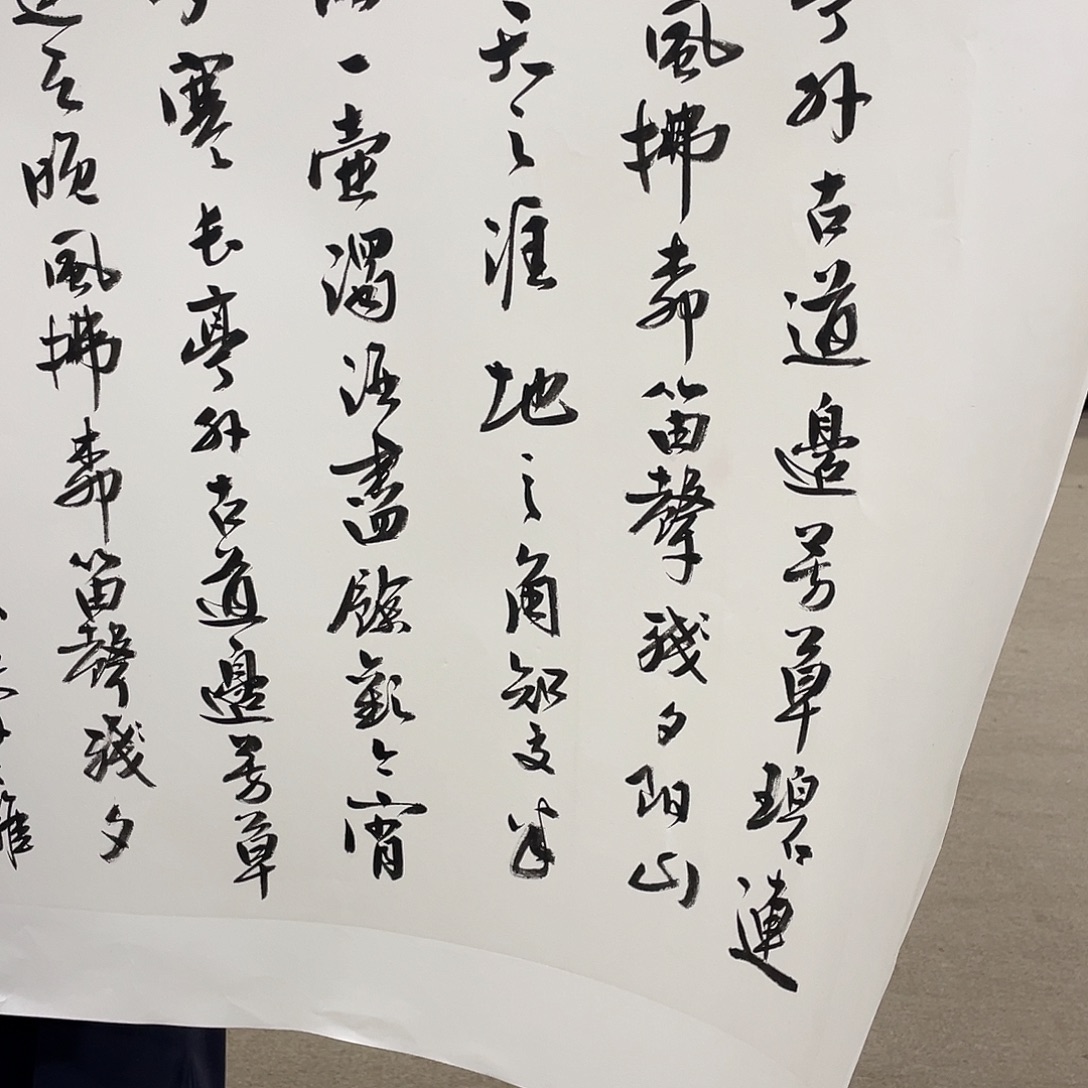 亭外古道邊芳草碧連
風拂柳笛聲殘夕阳山
天之涯地之角知交半
一壺濁酒盡餘歡今宵
寒长亭外古道邊芳草
晚風拂柳笛聲殘夕